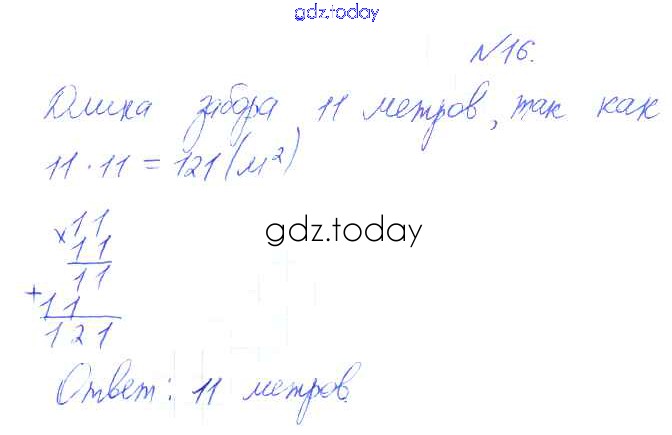 gdz.today
№16.
Длина забора 11 метров, так как
11 · 11 = 121 (м²)
11
× 11
11
+ 11
121
gdz.today
Ответ: 11 метров.